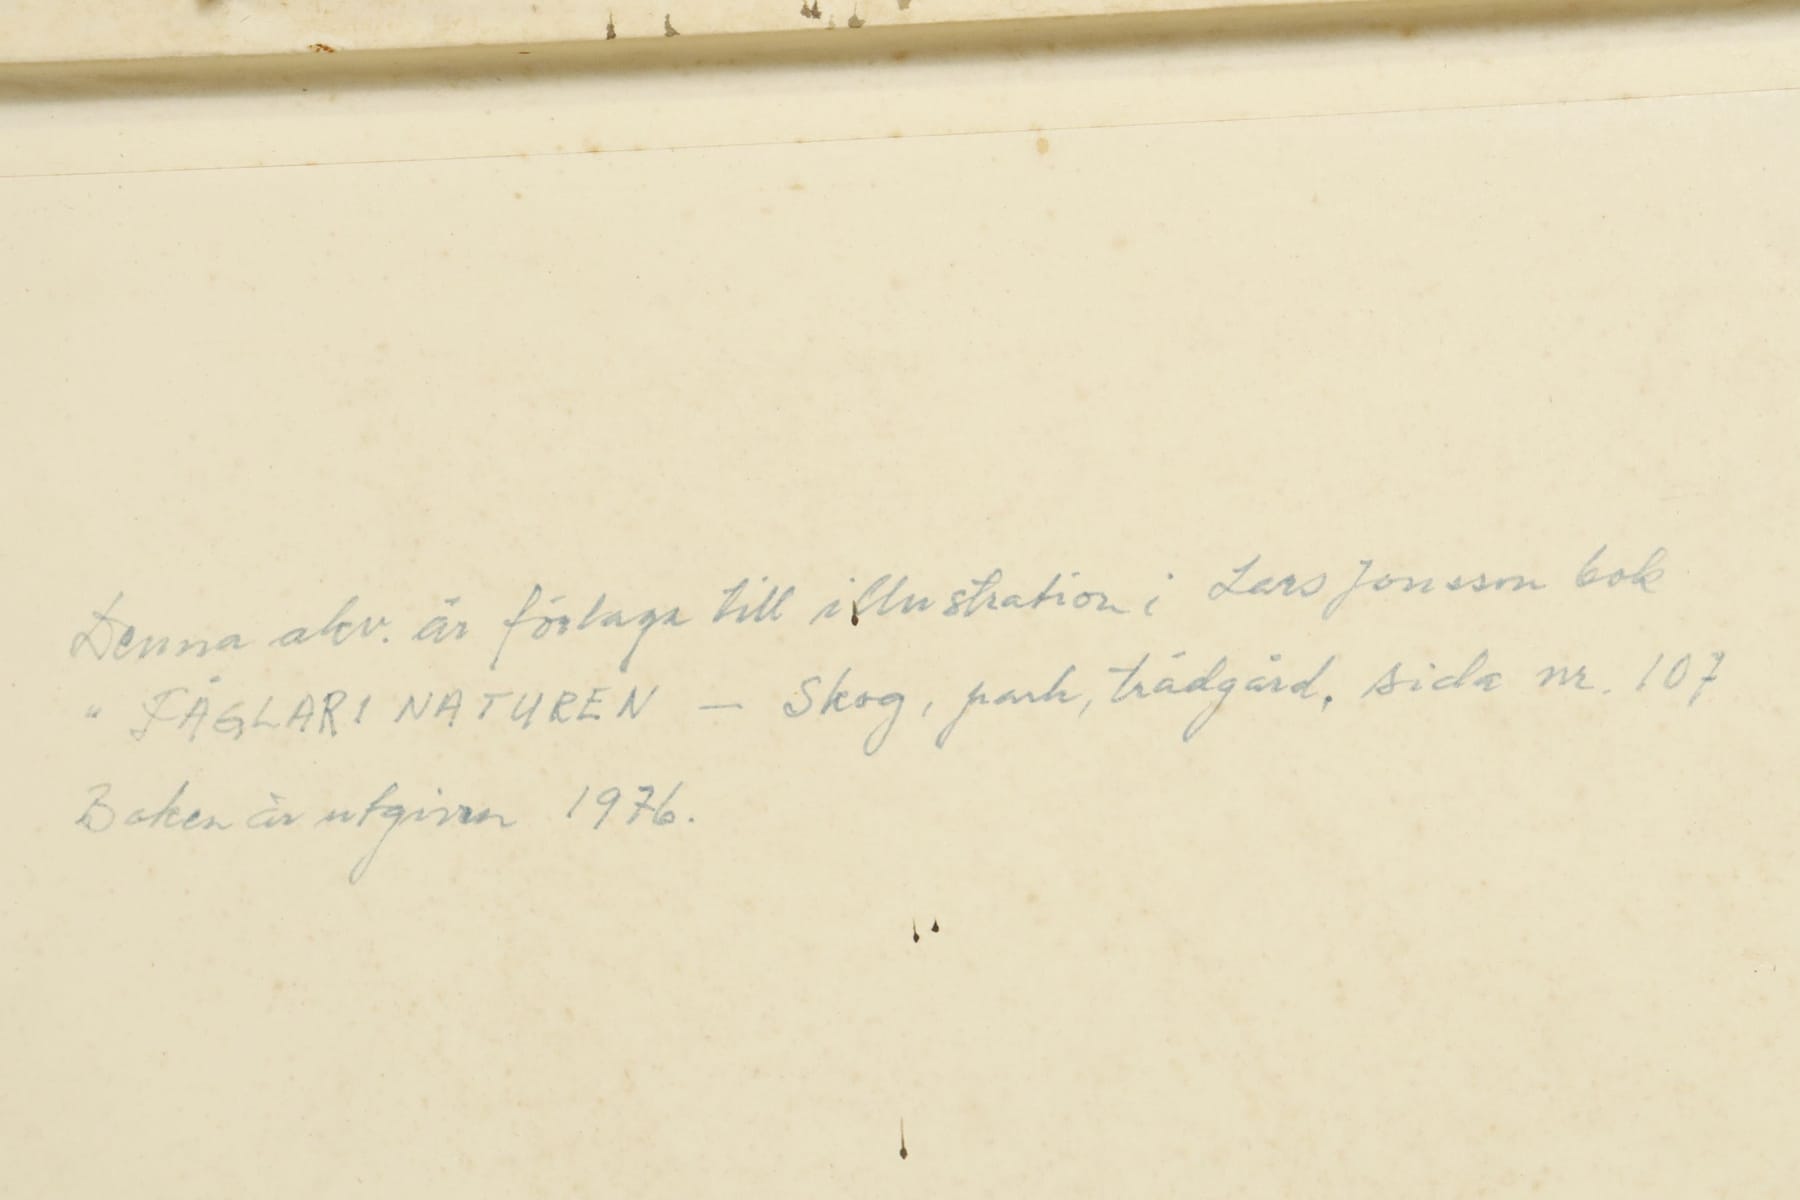 Denna akv. är förlaga till illustration i Lars Jonsson bok
" FÅGLAR I NATUREN — Skog, park, trädgård, sida nr. 107
Boken är utgiven 1976.